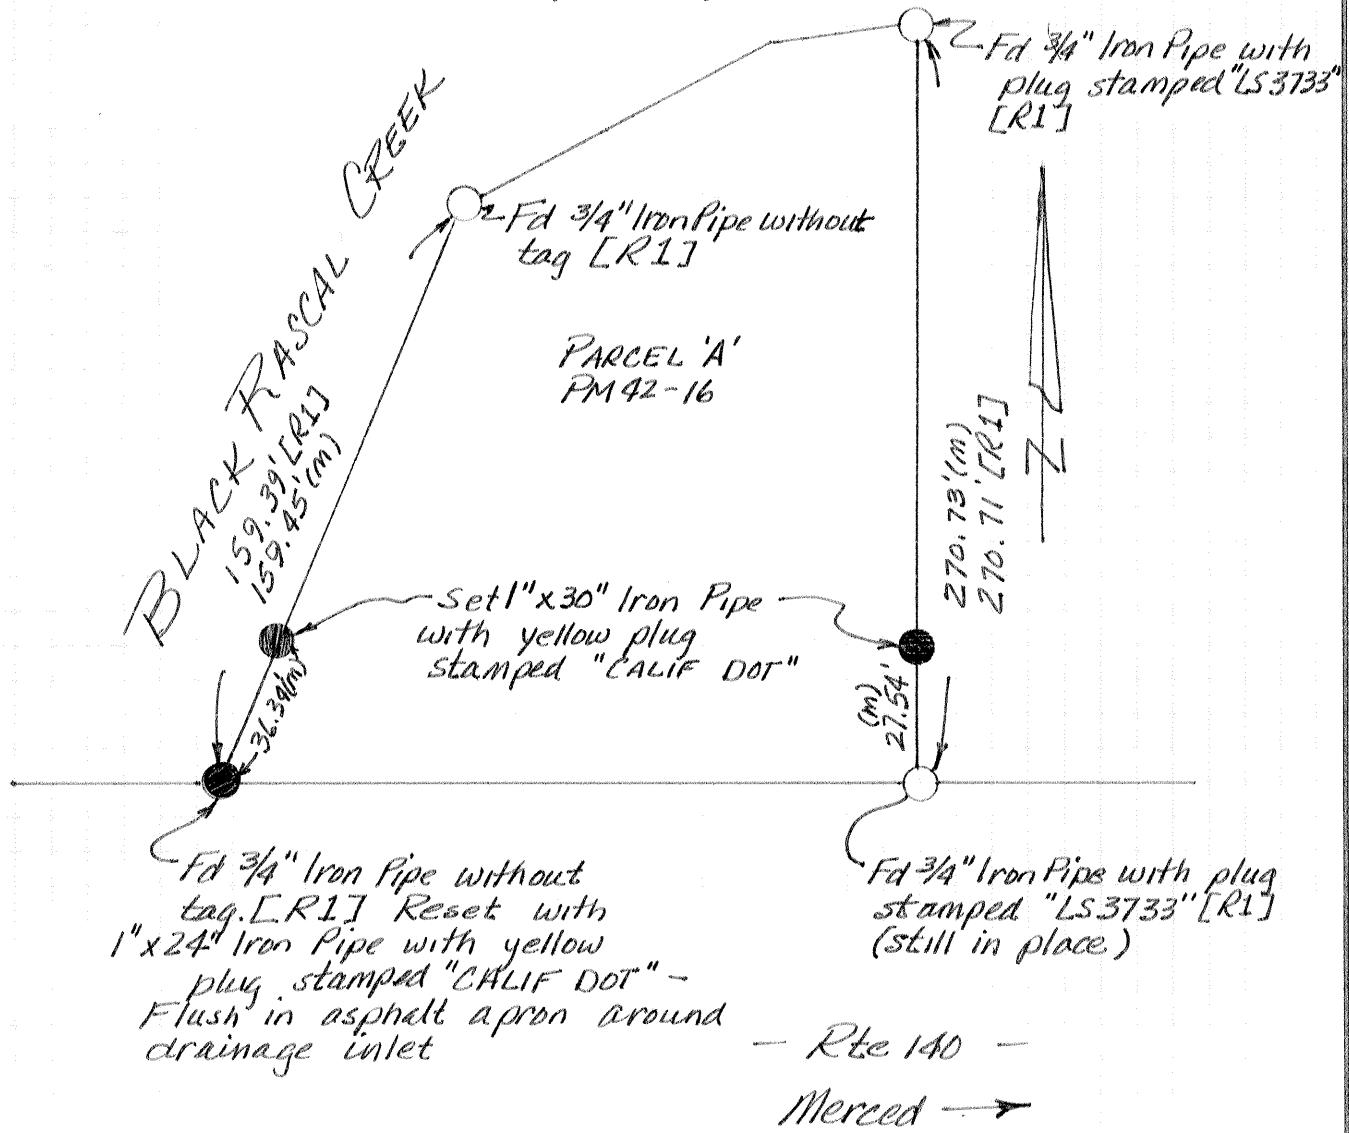 Fd 3/4" Iron Pipe with
plug stamped "LS3733"
[R1]
Fd 3/4" Iron Pipe without
tag [R1]
BLACK RASCAL CREEK
PARCEL 'A'
PM 42-16
159.39' [R1]
159.45' (M)
270.73' (M)
270.71' [R1]
Z
Set 1"x30" Iron Pipe
with yellow plug
stamped "CALIF DOT"
36.39' (M)
(M)
27.54'
Fd 3/4" Iron Pipe without
tag. [R1] Reset with
1"x24" Iron Pipe with yellow
plug stamped "CALIF DOT" -
Flush in asphalt apron around
drainage inlet
Fd 3/4" Iron Pipe with plug
stamped "LS3733" [R1]
(still in place)
- Rte 140 -
Merced